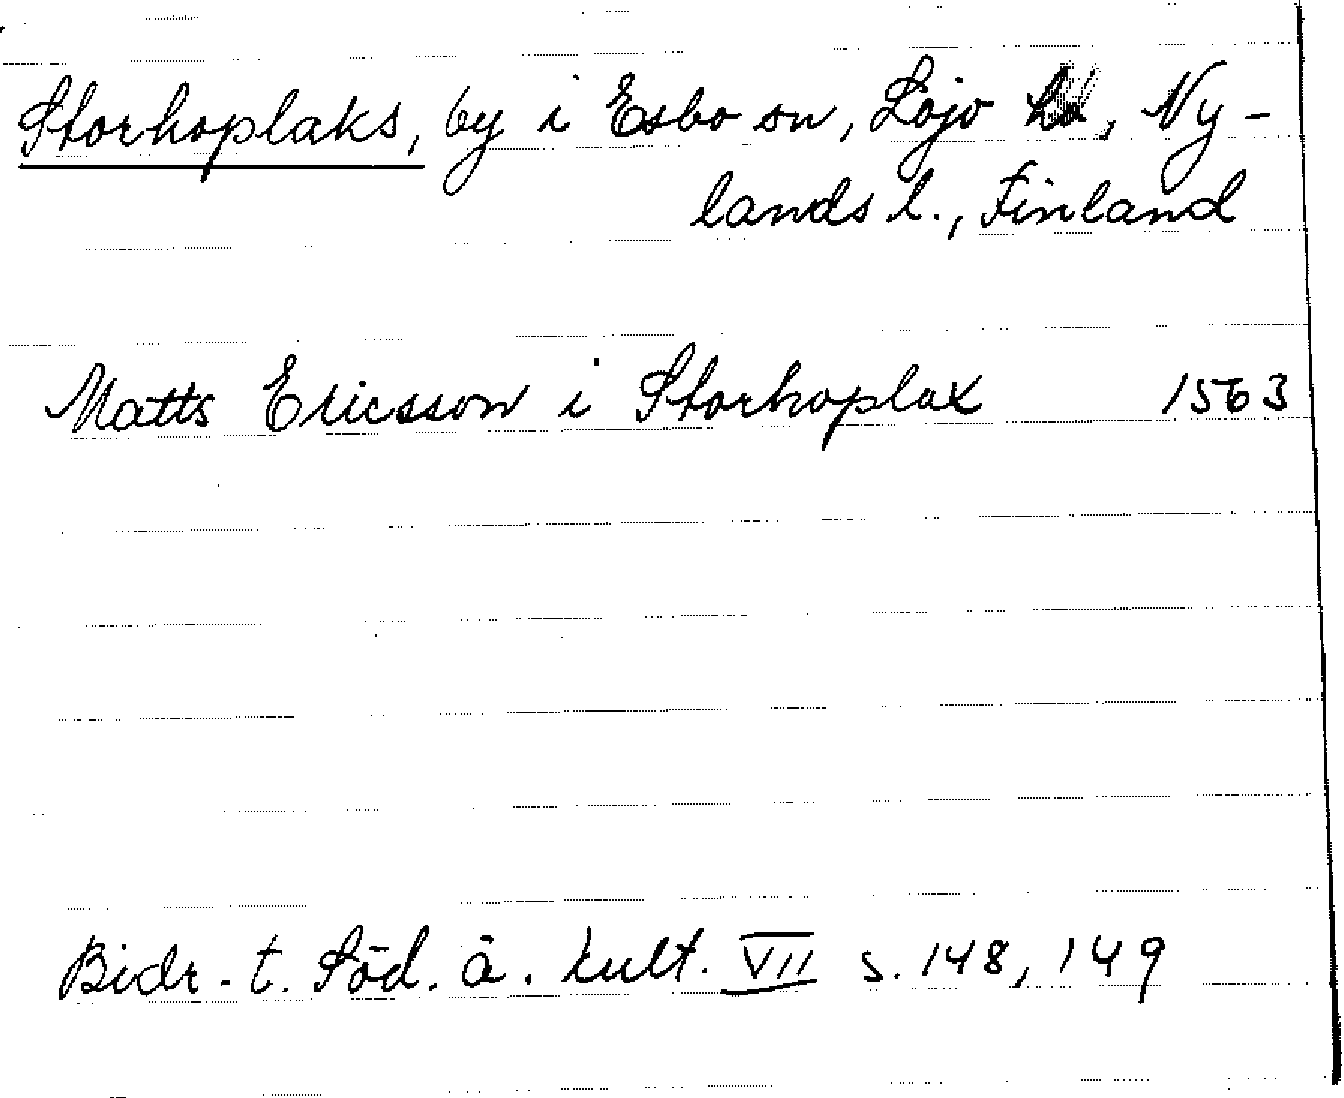 Storhoplaks, by i Esbo sn, Lojo hd, Ny-
lands l., Finland
Matts Ericsson i Storhoplax 1563
Bidr. t. Söd. ä. kult. VII s. 148, 149